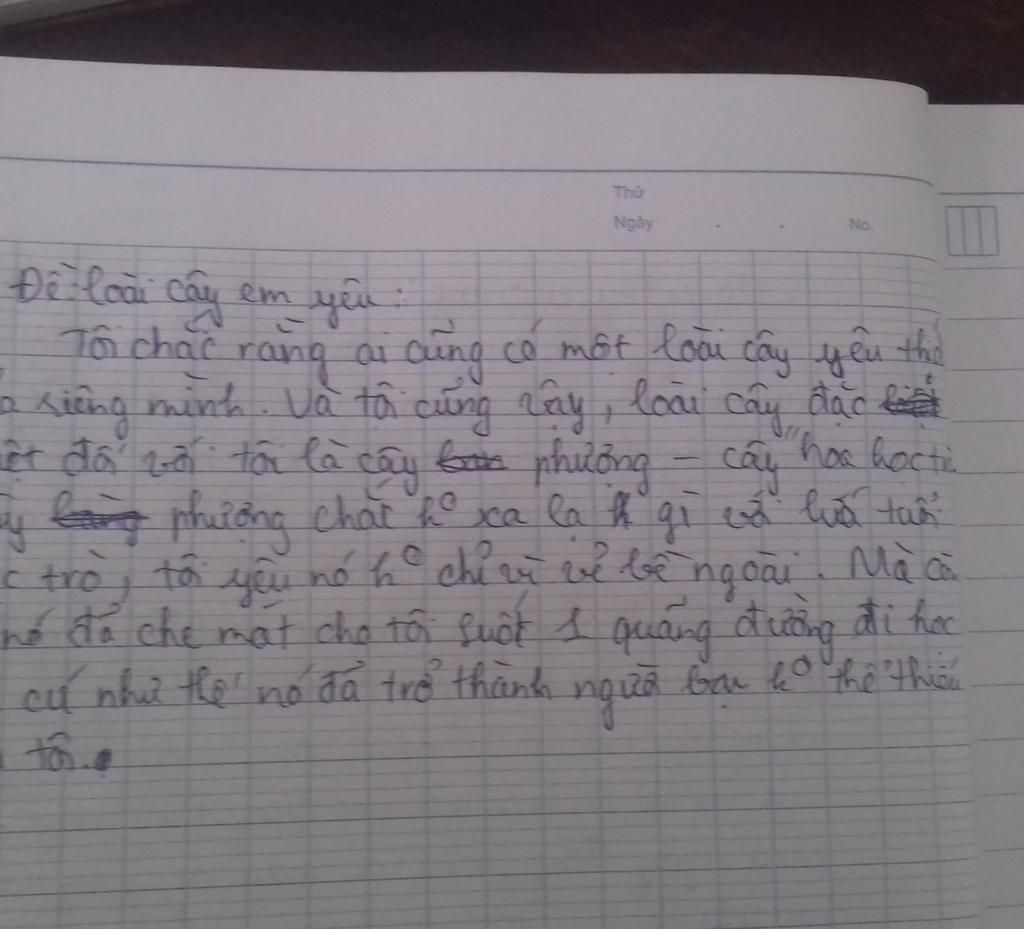 Thứ
Ngày . . No.
Đề: loài cây em yêu :
Tôi chắc rằng ai cũng có một loài cây yêu
riêng mình. Và tôi cũng vậy, loài cây đặc
đối với tôi là cây phượng - cây "hoa học
phượng chắc ko xa lạ gì với lứa tuổi
trò, tôi yêu nó ko chỉ vì vẻ bề ngoài. Mà còn
nó đã che mát cho tôi suốt 1 quãng đường đi học
cứ như thế nó đã trở thành người bạn ko thể thiếu
tôi.